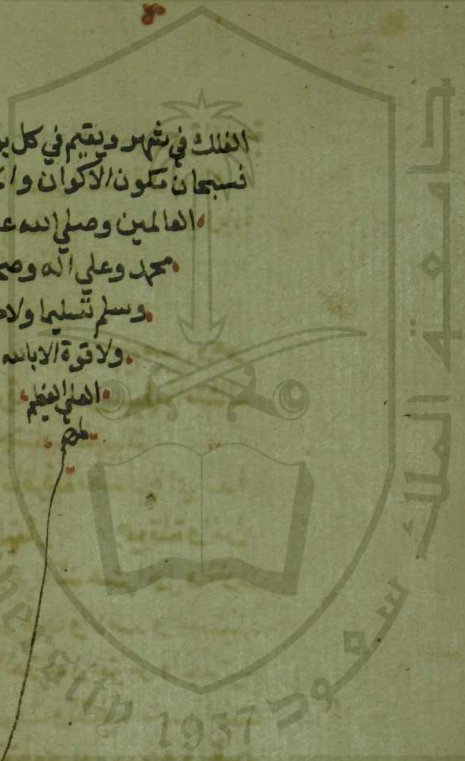 الفلك في شهر ويقيم في كل
فسبحان مكون الاكوان
العالمين وصلي الله
محمد وعلي اله
وسلم تسليما
ولا قوة الا بالله
العلي العظيم
جامعة الملك سعود
1957